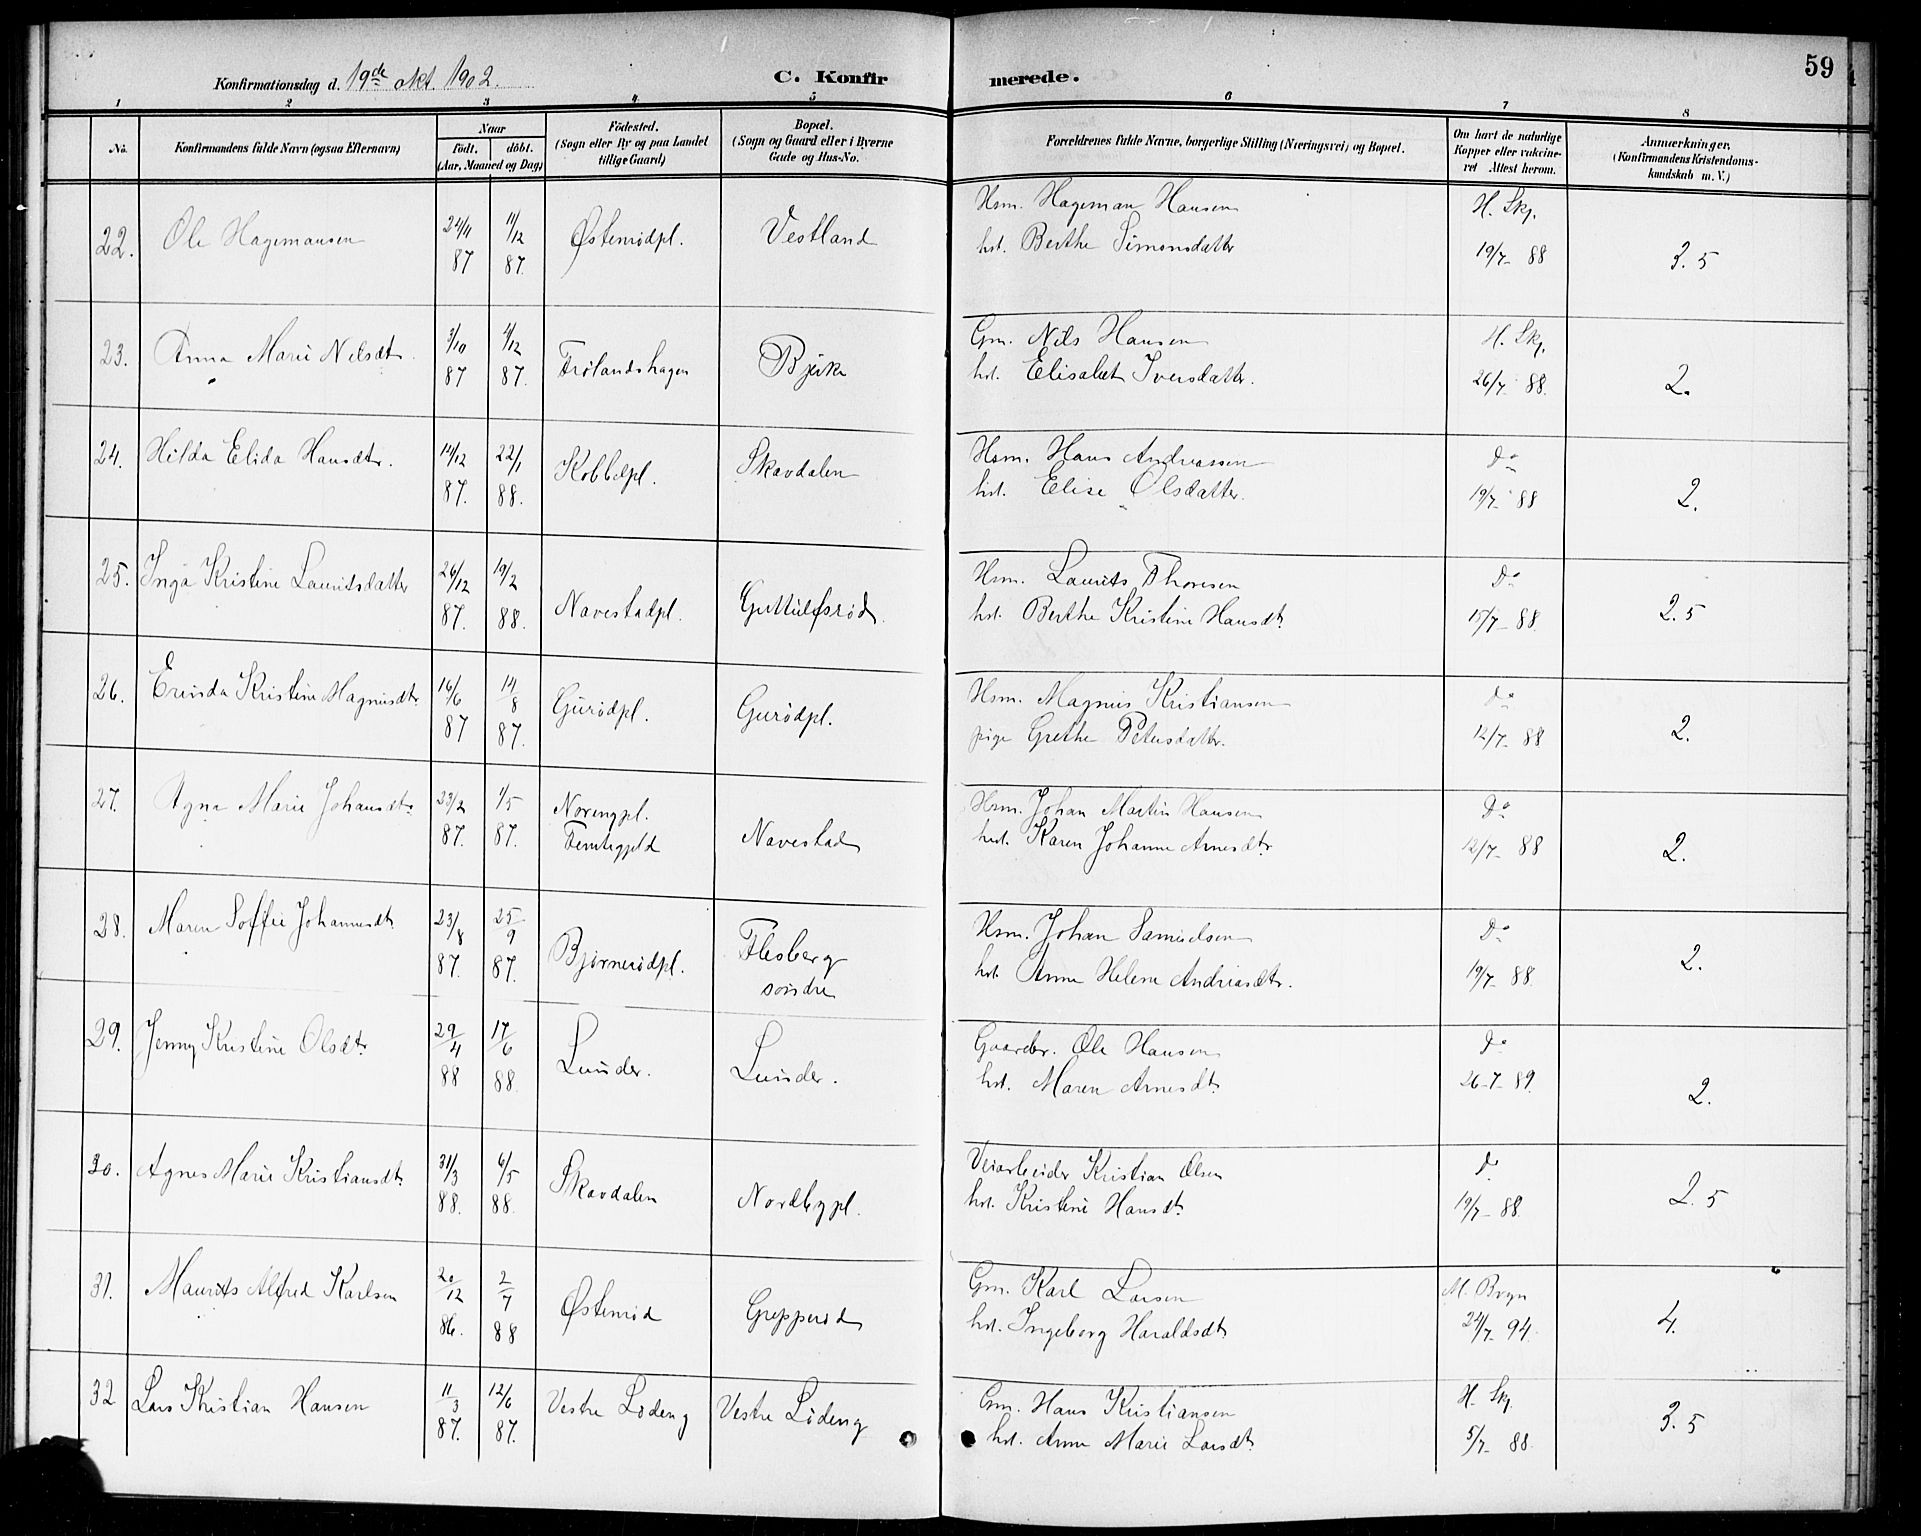 59
Konfirmationsdag d. 19de okt. 1902.
C. Konfirmerede.
1 2 3 4 5 6 7 8
No.
Konfirmandens fulde Navn (ogsaa Efternavn)
Naar
födt. döbt.
(Aar, Maaned og Dag)
Födested.
(Sogn eller By og paa Landet
tillige Gaard)
Bopæl.
(Sogn og Gaard eller i Byerne
Gade og Hus-No.
Forældrenes fulde Navne, borgerlige Stilling (Næringsvei) og Bopæl.
Om havt de naturlige
Kopper eller vakcine-
ret Attest herom.
Anmærkninger,
(Konfirmandens Kristendoms-
kundskab m. V.)
22. Ole Hagemansen 24/11 87 11/12 87. Østenrødpl. Vestland
Hsm. Hageman Hansen
hst. Berthe Simonsdatter
H. Skj. 19/7 88 3.5
23. Anna Marie Nilsdtr. 3/10 87 4/12 87. Frølandshagen Bjerke
Gm. Nils Hansen
hst. Elisabet Iversdatter.
H. Skj. 26/7 88. 2.
24. Hilda Elida Hansdtr. 14/12 87. 22/1 88. Kobbelpl. Skavdalen
Hsm. Hans Andreassen
hst. Elise Olsdatter.
Do 19/7 88 2.
25. Inga Kristine Lauritsdatter 26/12 87. 19/2 88. Navestadpl. Guttulfsrød.
Hsm. Laurits Thoresen
hst. Berthe Kristine Hansdtr.
Do 15/7 88. 2.5
26. Erinda Kristine Magnusdtr. 16/6 87 14/8 87. Gurödpl. Gurödpl.
Hsm. Magnus Kristiansen
pige Grethe Petersdatter.
Do 12/7 88 2.
27. Agna Marie Johansdtr. 23/2 87. 1/5 87. Norengpl.
Navestad
Hsm. Johan Martin Hansen
hst. Karen Johanne Arnesdtr.
Do 12/7 88 2.
28. Maren Soffie Johannesdtr. 23/8 87. 25/9 87. Bjørnerödpl. Flesberg
søndre
Hsm. Johan Samuelsen
hst. Anne Helene Andreasdtr.
Do 19/7 88. 2.
29. Jenny Kristine Olsdtr. 29/4 88 17/6 88. Lunder. Lunder.
Gaardbr. Ole Hansen
hst. Maren Arnesdtr.
Do 26-7-89. 2.
30. Agnes Marie Kristiansdtr. 31/3 88. 6/5 88. Skavdalen Nordbypl.
Veiarbeider Kristian Olsen
hst. Kristine Hansdtr.
Do 19/7 88. 2.5
31. Maurits Alfred Karlsen 20/12 86. 2/7 88 Østenrød Grepperød
Gm. Karl Larsen
hst. Ingeborg Haraldsdtr.
M. Bryn 24/7 94. 4.
32 Lars Kristian Hansen 11/3 87. 12/6 87. Vestre Lödeng Vestre Lödeng
Gm. Hans Kristiansen
hst. Anne Marie Larsdtr.
H. Skj. 5/7 88. 3.5